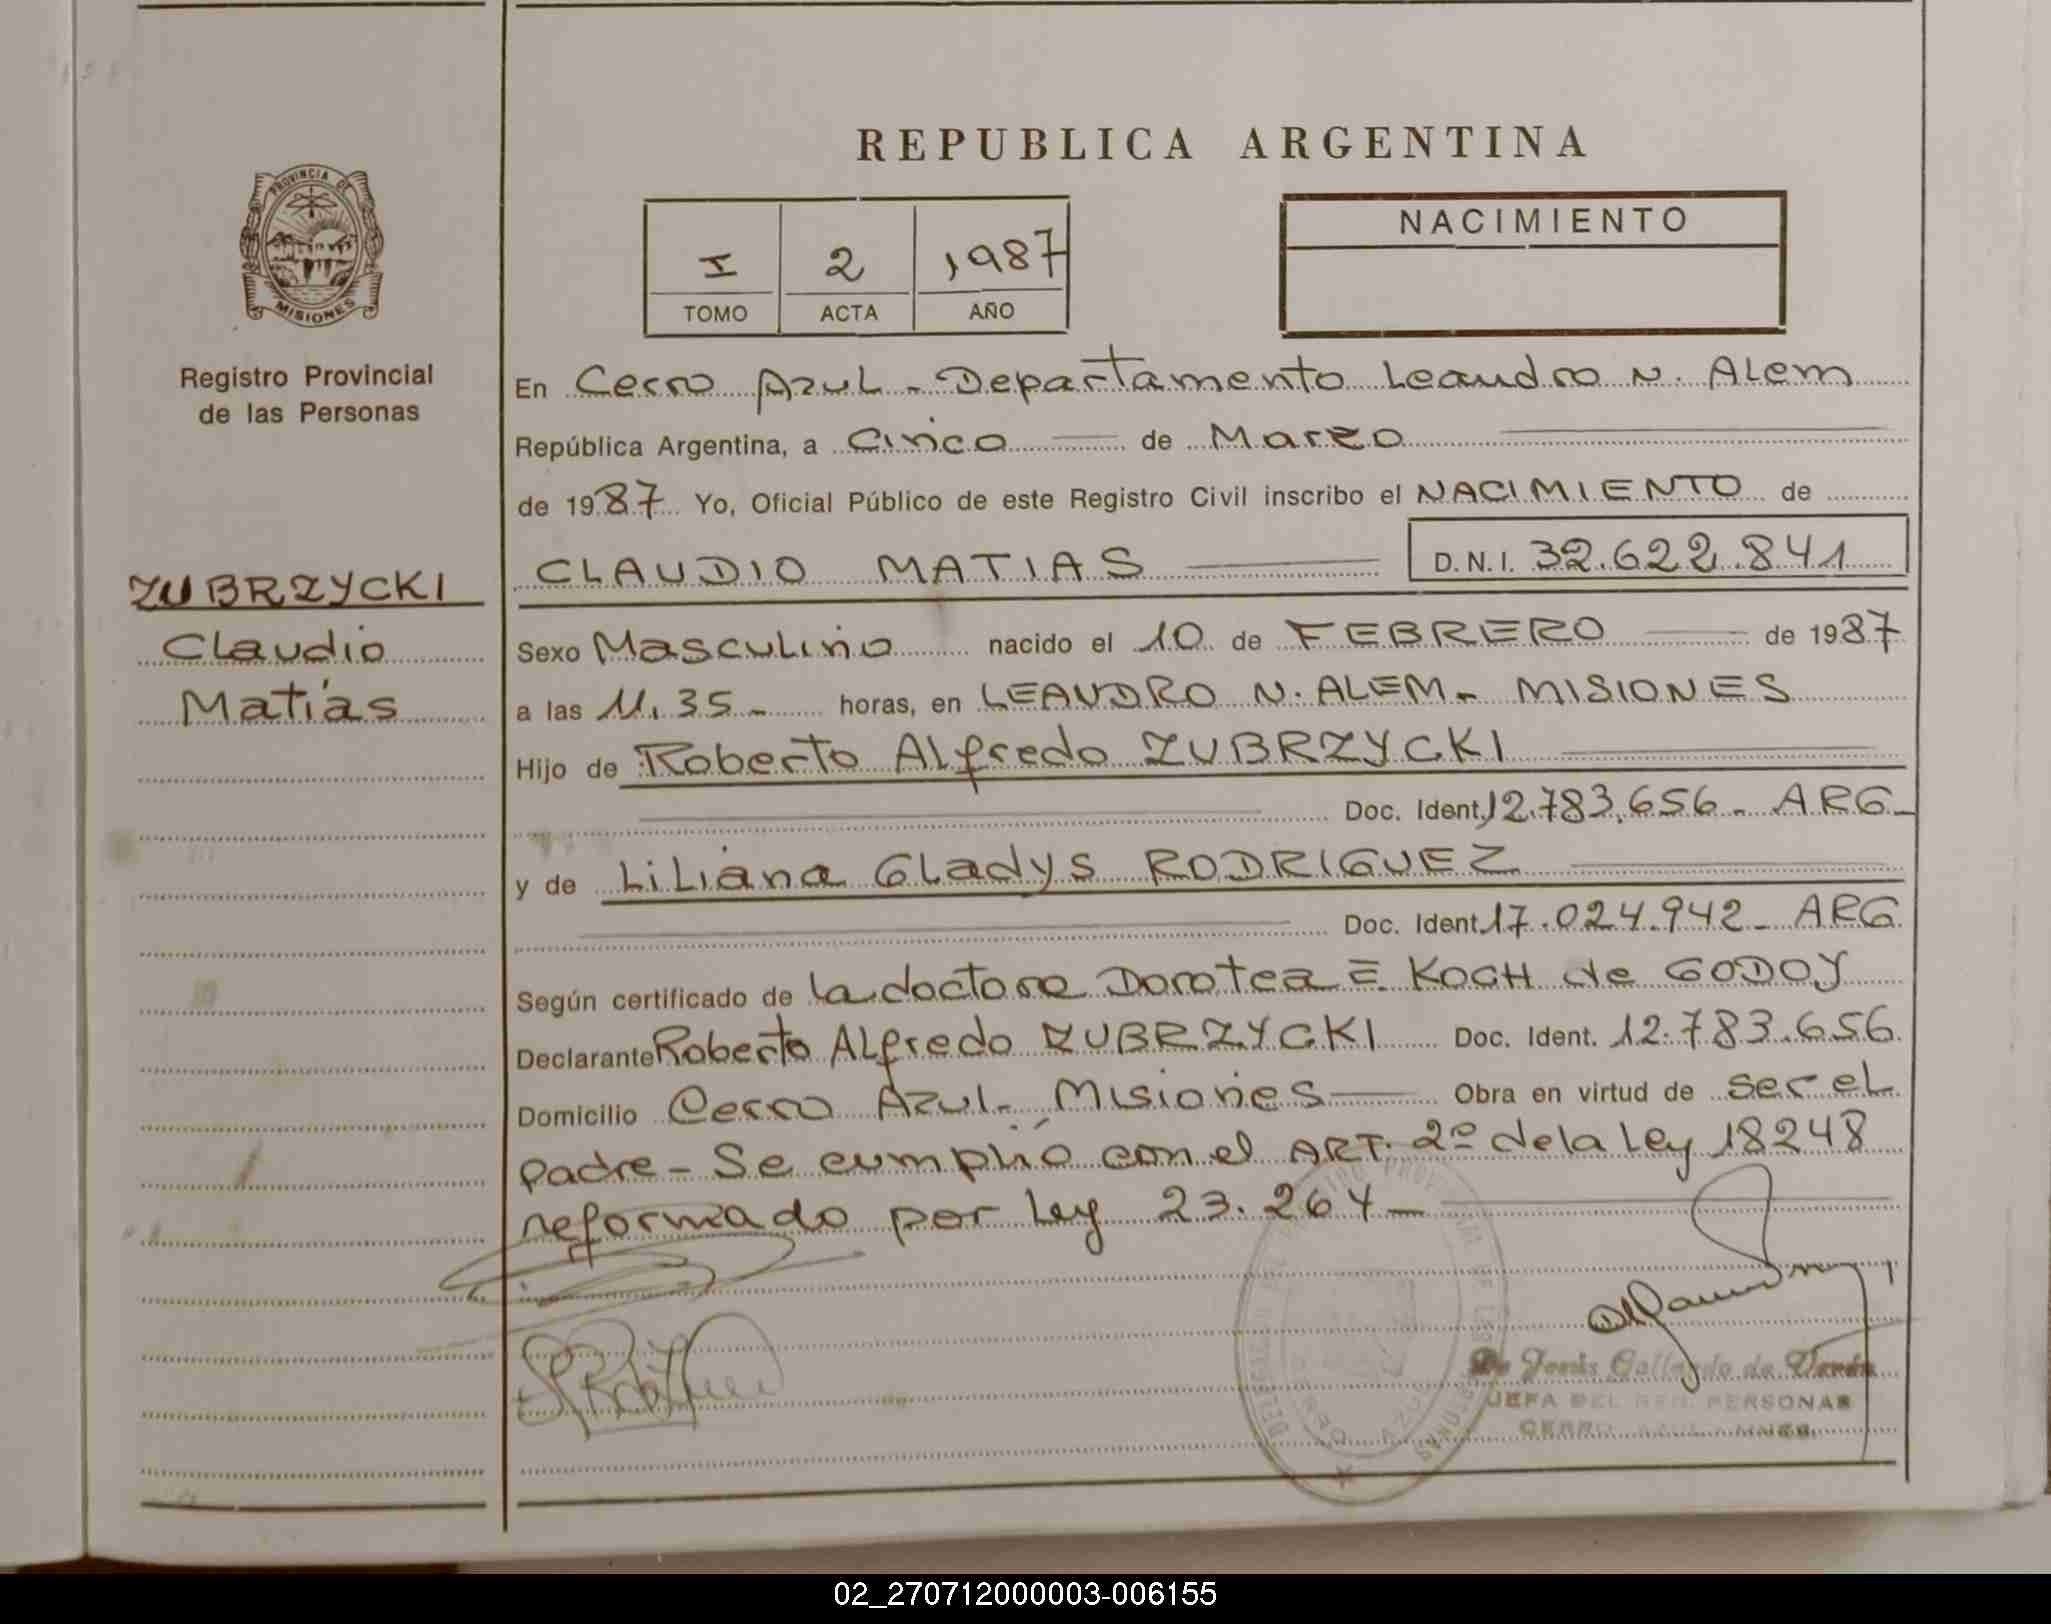 REPUBLICA ARGENTINA
PROVINCIA DE
MISIONES
Registro Provincial
de las Personas
I 2 1987
TOMO ACTA AÑO
NACIMIENTO
En Cerro Azul - Departamento Leandro N. Alem
República Argentina, a Cinco de Marzo
de 1987 Yo, Oficial Público de este Registro Civil inscribo el NACIMIENTO de
CLAUDIO MATIAS D.N.I. 32.622.841
ZUBRZYCKI
Claudio
Matías
Sexo Masculino nacido el 10 de FEBRERO de 1987
a las 11.35 - horas, en LEANDRO N. ALEM - MISIONES
Hijo de Roberto Alfredo ZUBRZYCKI
Doc. Ident. 12.783.656 - ARG -
y de Liliana Gladys RODRIGUEZ
Doc. Ident. 17.024.942 - ARG.
Según certificado de la doctora Dorotea E. KOCH de GODOY
Declarante Roberto Alfredo ZUBRZYCKI Doc. Ident. 12.783.656
Domicilio Cerro Azul - Misiones Obra en virtud de ser el
padre - Se cumplió con el ART. 2º de la Ley 18248
reformado por Ley 23.264 -
de Jesús Gallardo de
JEFA DEL REG. PERSONAS
CERRO AZUL MNES.
02_270712000003-006155